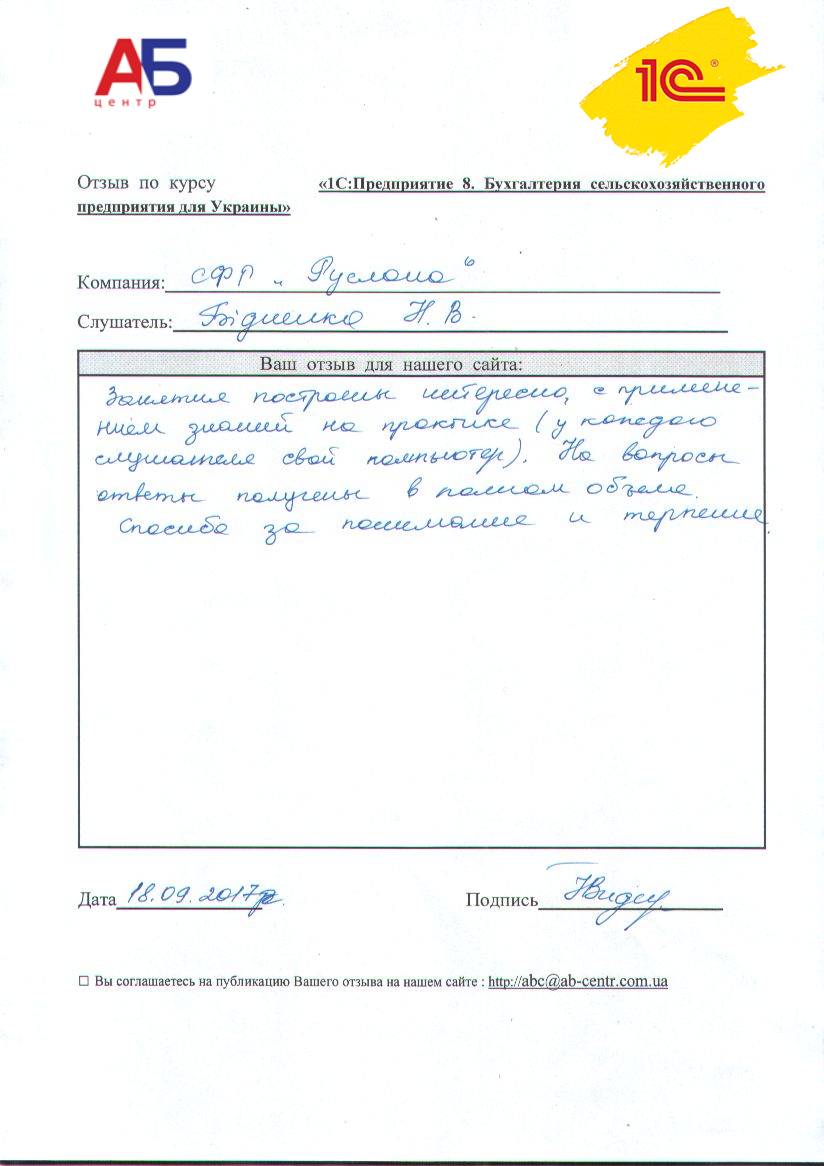 АБ
центр
1С®
Отзыв по курсу «1С:Предприятие 8. Бухгалтерия сельскохозяйственного
предприятия для Украины»
Компания: СФГ „Руслана“
Слушатель: Бідненко Н. В.
Ваш отзыв для нашего сайта:
Занятия построены интересно, с примене-
нием знаний на практике (у каждого
слушателя свой компьютер). На вопросы
ответы получены в полном объеме.
Спасибо за понимание и терпение
Дата 18.09.2017р.
Подпись
☐ Вы соглашаетесь на публикацию Вашего отзыва на нашем сайте : http://abc@ab-centr.com.ua